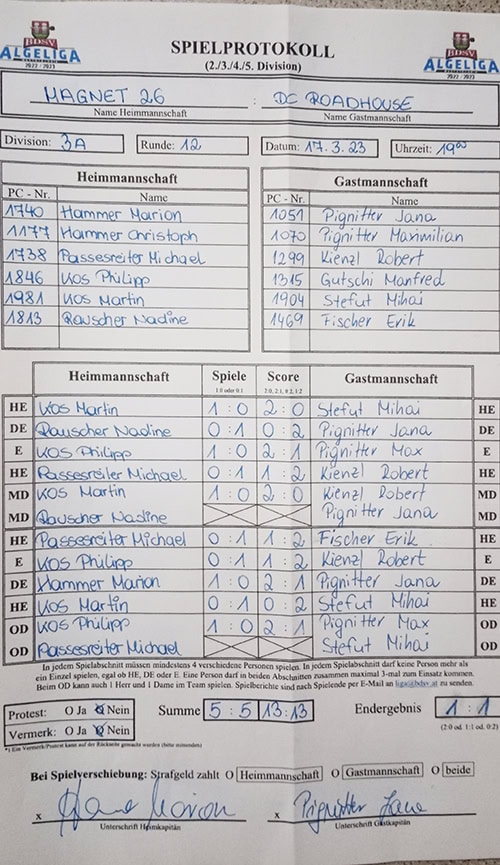 BDSV
ALGELIGA
2022 / 2023
SPIELPROTOKOLL
(2./3./4./5. Division)
BDSV
ALGELIGA
2022 / 2023
MAGNET 26 : DC ROADHOUSE
Name Heimmannschaft Name Gastmannschaft
Division: 3A Runde: 12 Datum: 17.3.23 Uhrzeit: 19⁰⁰
Heimmannschaft Gastmannschaft
PC - Nr. Name PC - Nr. Name
1740 Hammer Marion 1051 Pignitter Jana
1177 Hammer Christoph 1070 Pignitter Maximilian
1738 Passesreiter Michael 1299 Kienzl Robert
1846 Kos Philipp 1315 Gutschi Manfred
1981 Kos Martin 1904 Stefut Mihai
1813 Rauscher Nadine 1469 Fischer Erik
Heimmannschaft Spiele Score Gastmannschaft
1:0 oder 0:1 2:0, 2:1, 0:2, 1:2
HE Kos Martin 1 : 0 2 : 0 Stefut Mihai HE
DE Rauscher Nadine 0 : 1 0 : 2 Pignitter Jana DE
E Kos Philipp 1 : 0 2 : 1 Pignitter Max E
HE Passesreiter Michael 0 : 1 1 : 2 Kienzl Robert HE
MD Kos Martin 1 : 0 2 : 0 Kienzl Robert MD
MD Rauscher Nadine Pignitter Jana MD
HE Passesreiter Michael 0 : 1 1 : 2 Fischer Erik HE
E Kos Philipp 0 : 1 1 : 2 Kienzl Robert E
DE Hammer Marion 1 : 0 2 : 1 Pignitter Jana DE
HE Kos Martin 0 : 1 0 : 2 Stefut Mihai HE
OD Kos Philipp 1 : 0 2 : 1 Pignitter Max OD
OD Passesreiter Michael Stefut Mihai OD
In jedem Spielabschnitt müssen mindestens 4 verschiedene Personen spielen. In jedem Spielabschnitt darf keine Person mehr als
ein Einzel spielen, egal ob HE, DE oder E. Eine Person darf in beiden Abschnitten zusammen maximal 3-mal zum Einsatz kommen.
Beim OD kann auch 1 Herr und 1 Dame im Team spielen. Spielberichte sind nach Spielende per E-Mail an liga@bdsv.at zu senden.
Protest: O Ja O Nein Summe 5 : 5 13:13 Endergebnis 1 : 1
Vermerk: O Ja O Nein (2:0 od. 1:1 od. 0:2)
*) Ein Vermerk/Protest kann auf der Rückseite gemacht werden (bitte ankreuzen)
Bei Spielverschiebung: Strafgeld zahlt O Heimmannschaft O Gastmannschaft O beide
x x Pignitter Jana
Unterschrift Heimkapitän Unterschrift Gastkapitän